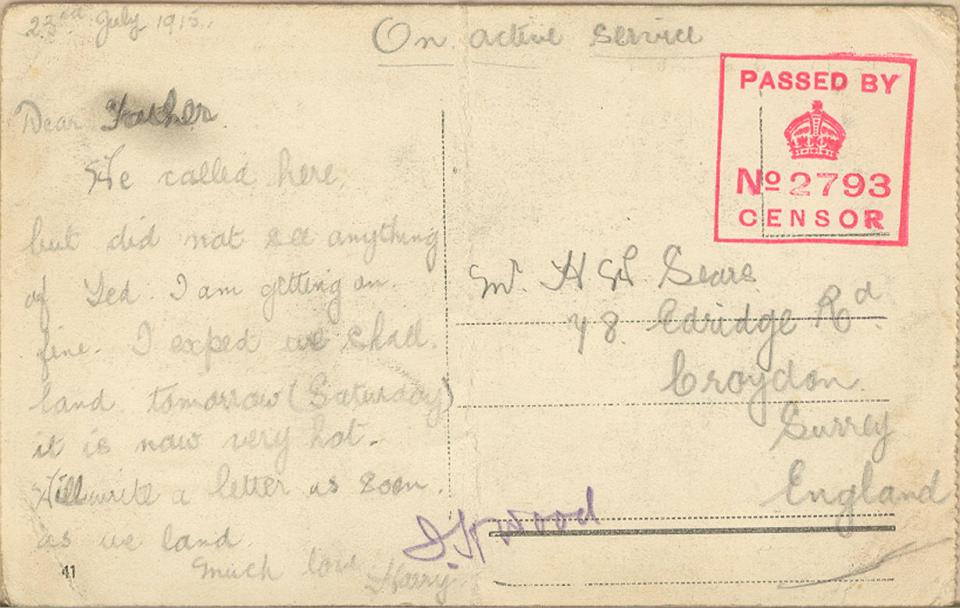 23rd July 1915.
On active service
Dear Father
We called here,
but did not see anything
of Ted. I am getting on
fine. I expect we shall
land tomorrow (Saturday)
it is now very hot.
Will write a letter as soon
as we land.
Much love
Harry
41
PASSED BY
No 2793
CENSOR
Mr. H W Sears
48. Edridge Rd.
Croydon.
Surrey
England
Wood